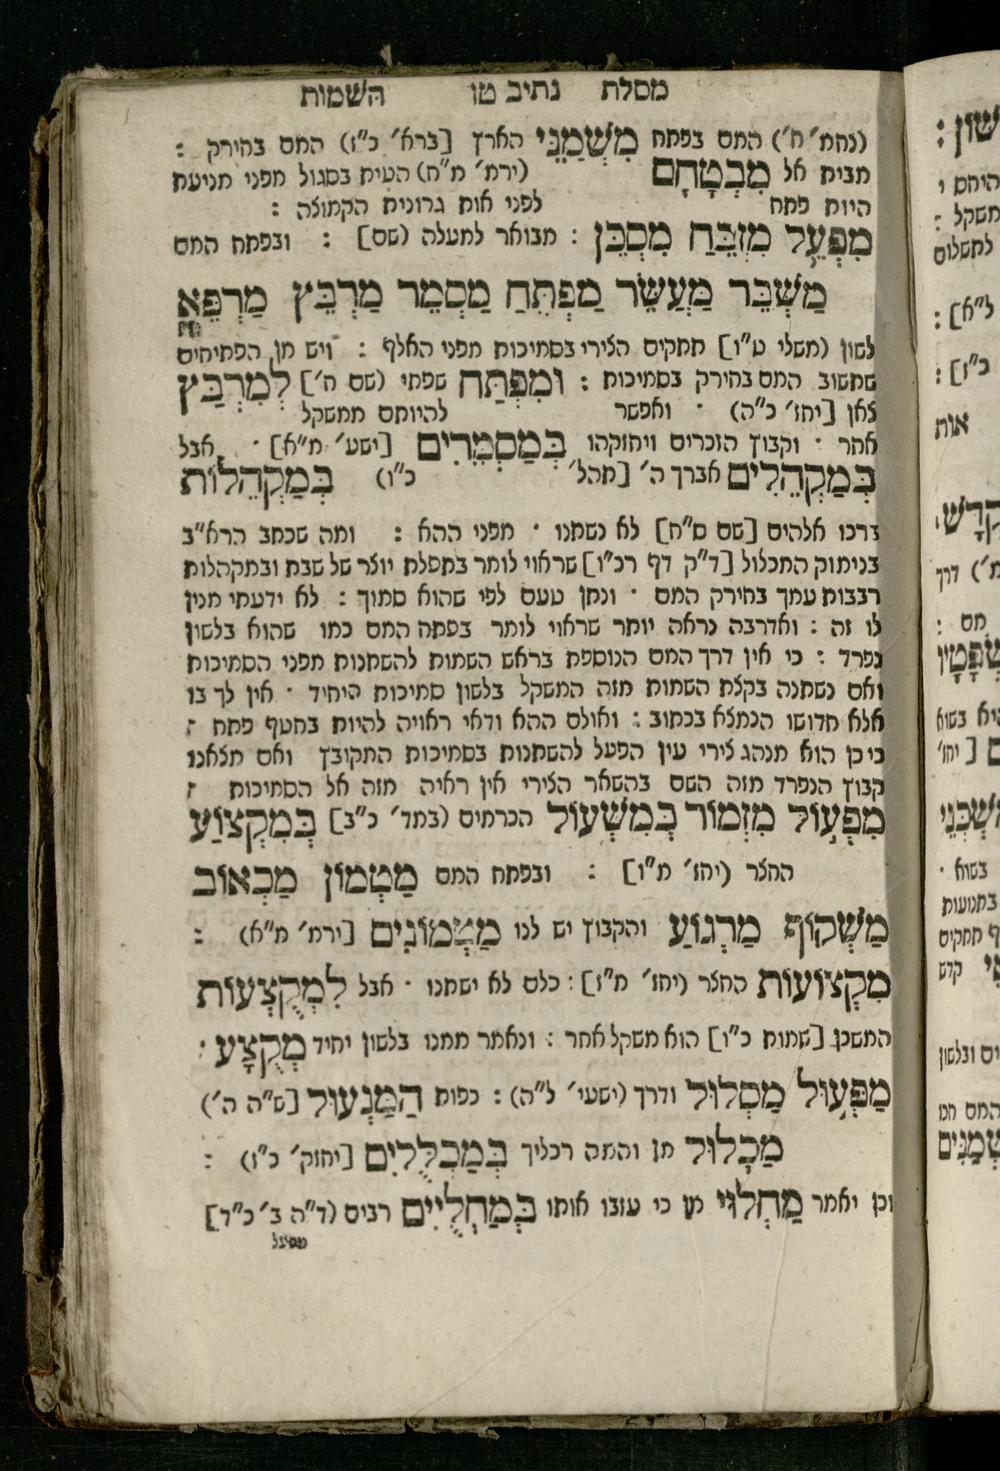 מסלת נתיב טו השמות
(נחמ׳ ח׳) המם בפתח מִשְׁמַנֵּי הארץ [ברא׳ כ״ז) המם בחירק :
מבית אל מִבְטָחָם (ירמ׳ מ״ח) הטית בסגול מפני מניעת
היות פתח לפני אות גרונית הקמוצה :
מִפְעֵל מִזְבֵּחַ מִסְכֵּן : מבואר למעלה (שם] : ובפתח המם
מַשְׁבֵּר מַעֲשֵׂר מַפְתֵּחַ מַסְמֵר מַרְבֵּץ מַרְפֵּא
לשון (משלי ט״ו] תתקים הצירי בסמיכות מפני האלף : ויש מן הפתיחים
שתשוב המם בחירק בסמיכות : וּמִפְתַּח שפתי (שם ח׳] לְמִרְבַּץ
צאן [יחז׳ כ״ה) ׳ ואפשר להיותם ממשקל
אחר ׳ וקבוץ הזכרים ויחזקהו בְּמַסְמְרִים [ישע׳ מ״א] ׳ אבל
בְּמַקְהֵלִים אברך ה׳ [תהל׳ כ״ו) בְּמַקְהֵלוֹת
ברכו אלהים [שם ס״ח] לא נשתנו ׳ מפני ההא : ומה שכתב הרא״ב
בנימוק המכלול [ד״ק דף רכ״ו] שראוי לומר בתפלת יוצר של שבת ובמקהלות
רבבות עמך בחירק המם ׳ ונתן טעם לפי שהוא סמוך : לא ידעתי מנין
לו זה : ואדרבה נראה יותר שראוי לומר בפתח המם כמו שהוא בלשון
נפרד : כי אין דרך המם הנוספת בראש השמות להשתנות מפני הסמיכות
ואם נשתנה בקצת השמות מזה המשקל בלשון סמיכות היחיד ׳ אין לך בו
אלא חדושו הנמצא בכתוב : ואולם ההא ודאי ראויה להיות בחטף פתח :
כי כן הוא מנהג צירי עין הפעל להשתנות בסמיכות התקובץ ואם מצאנו
קבוץ הנפרד מזה השם בהשאר הצירי אין ראיה מזה אל הסמיכות :
מִפְעוֹל מִזְמוֹר בְּמִשְׁעוֹל הכרמים (במד׳ כ״ב] בְּמִקְצוֹעַ
החצר (יחז׳ מ״ו] : ובפתח המם מַטְמוֹן מַכְאוֹב
מַשְׁקוֹף מַרְגּוֹעַ והקבוץ יש לנו מַטְמוֹנִים [ירמ׳ מ״א) :
מִקְצוֹעוֹת החצר (יחז׳ מ״ו] : כלם לא ישתנו ׳ אבל לִמְקֻצְעוֹת
המשכן [שמות כ״ו] הוא משקל אחר : ונאמר ממנו בלשון יחיד מְקֻצָע ׃
מַפְעוּל מַסְלוּל ודרך (ישעי׳ ל״ה) : כפות הַמַּנְעוּל [ש״ה ה׳)
מַכְלוּל מן והמה רכליך בְּמַכְלֻלִים [יחזק׳ כ״ז) :
וכן יאמר מַחְלוּי מן כי עזבו אותו בְּמַחְלֻיִים רבים (ד״ה ב׳ כ״ד]